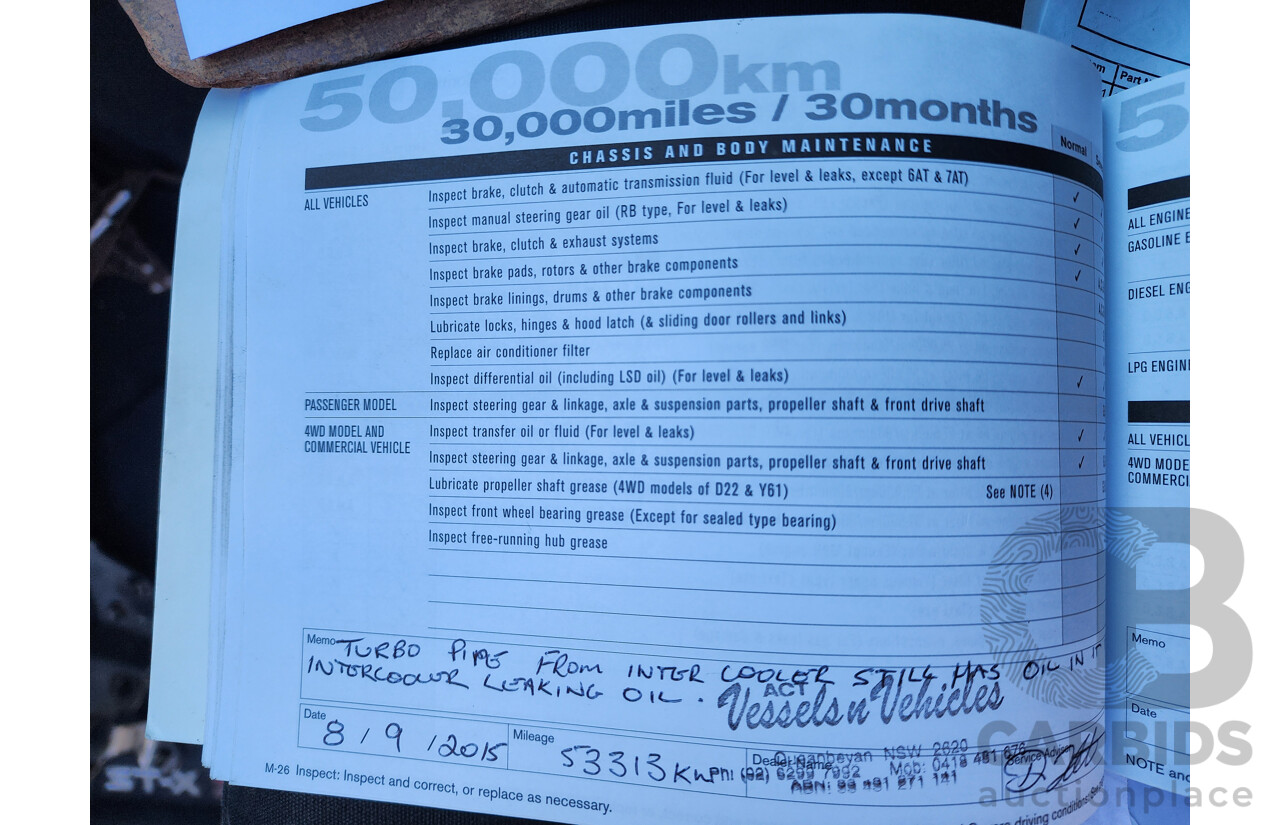 50,000km
30,000miles / 30months
CHASSIS AND BODY MAINTENANCE
Normal
ALL VEHICLES
Inspect brake, clutch & automatic transmission fluid (For level & leaks, except 6AT & 7AT) ✓
Inspect manual steering gear oil (RB type, For level & leaks) ✓
Inspect brake, clutch & exhaust systems ✓
Inspect brake pads, rotors & other brake components ✓
Inspect brake linings, drums & other brake components
Lubricate locks, hinges & hood latch (& sliding door rollers and links)
Replace air conditioner filter
Inspect differential oil (including LSD oil) (For level & leaks) ✓
PASSENGER MODEL Inspect steering gear & linkage, axle & suspension parts, propeller shaft & front drive shaft
4WD MODEL AND
COMMERCIAL VEHICLE
Inspect transfer oil or fluid (For level & leaks) ✓
Inspect steering gear & linkage, axle & suspension parts, propeller shaft & front drive shaft ✓
Lubricate propeller shaft grease (4WD models of D22 & Y61) See NOTE (4)
Inspect front wheel bearing grease (Except for sealed type bearing)
Inspect free-running hub grease
Memo TURBO PIPE FROM INTER COOLER STILL HAS OIL IN IT
INTERCOOLER LEAKING OIL.
ACT
Vessels n Vehicles
Date 8/9/2015
Mileage 53313 Km
Dealer Name
Queanbeyan NSW 2620
Ph: (02) 6299 7992 Mob: 0418 481 676
Service Advisor
M-26 Inspect: Inspect and correct, or replace as necessary.
driving conditions
Part
5
ALL ENGINE
GASOLINE E
DIESEL ENG
LPG ENGIN
ALL VEHICL
4WD MODE
COMMERCI
Memo
Date
NOTE and
ST-X
CB
CARBIDS
auctionplace